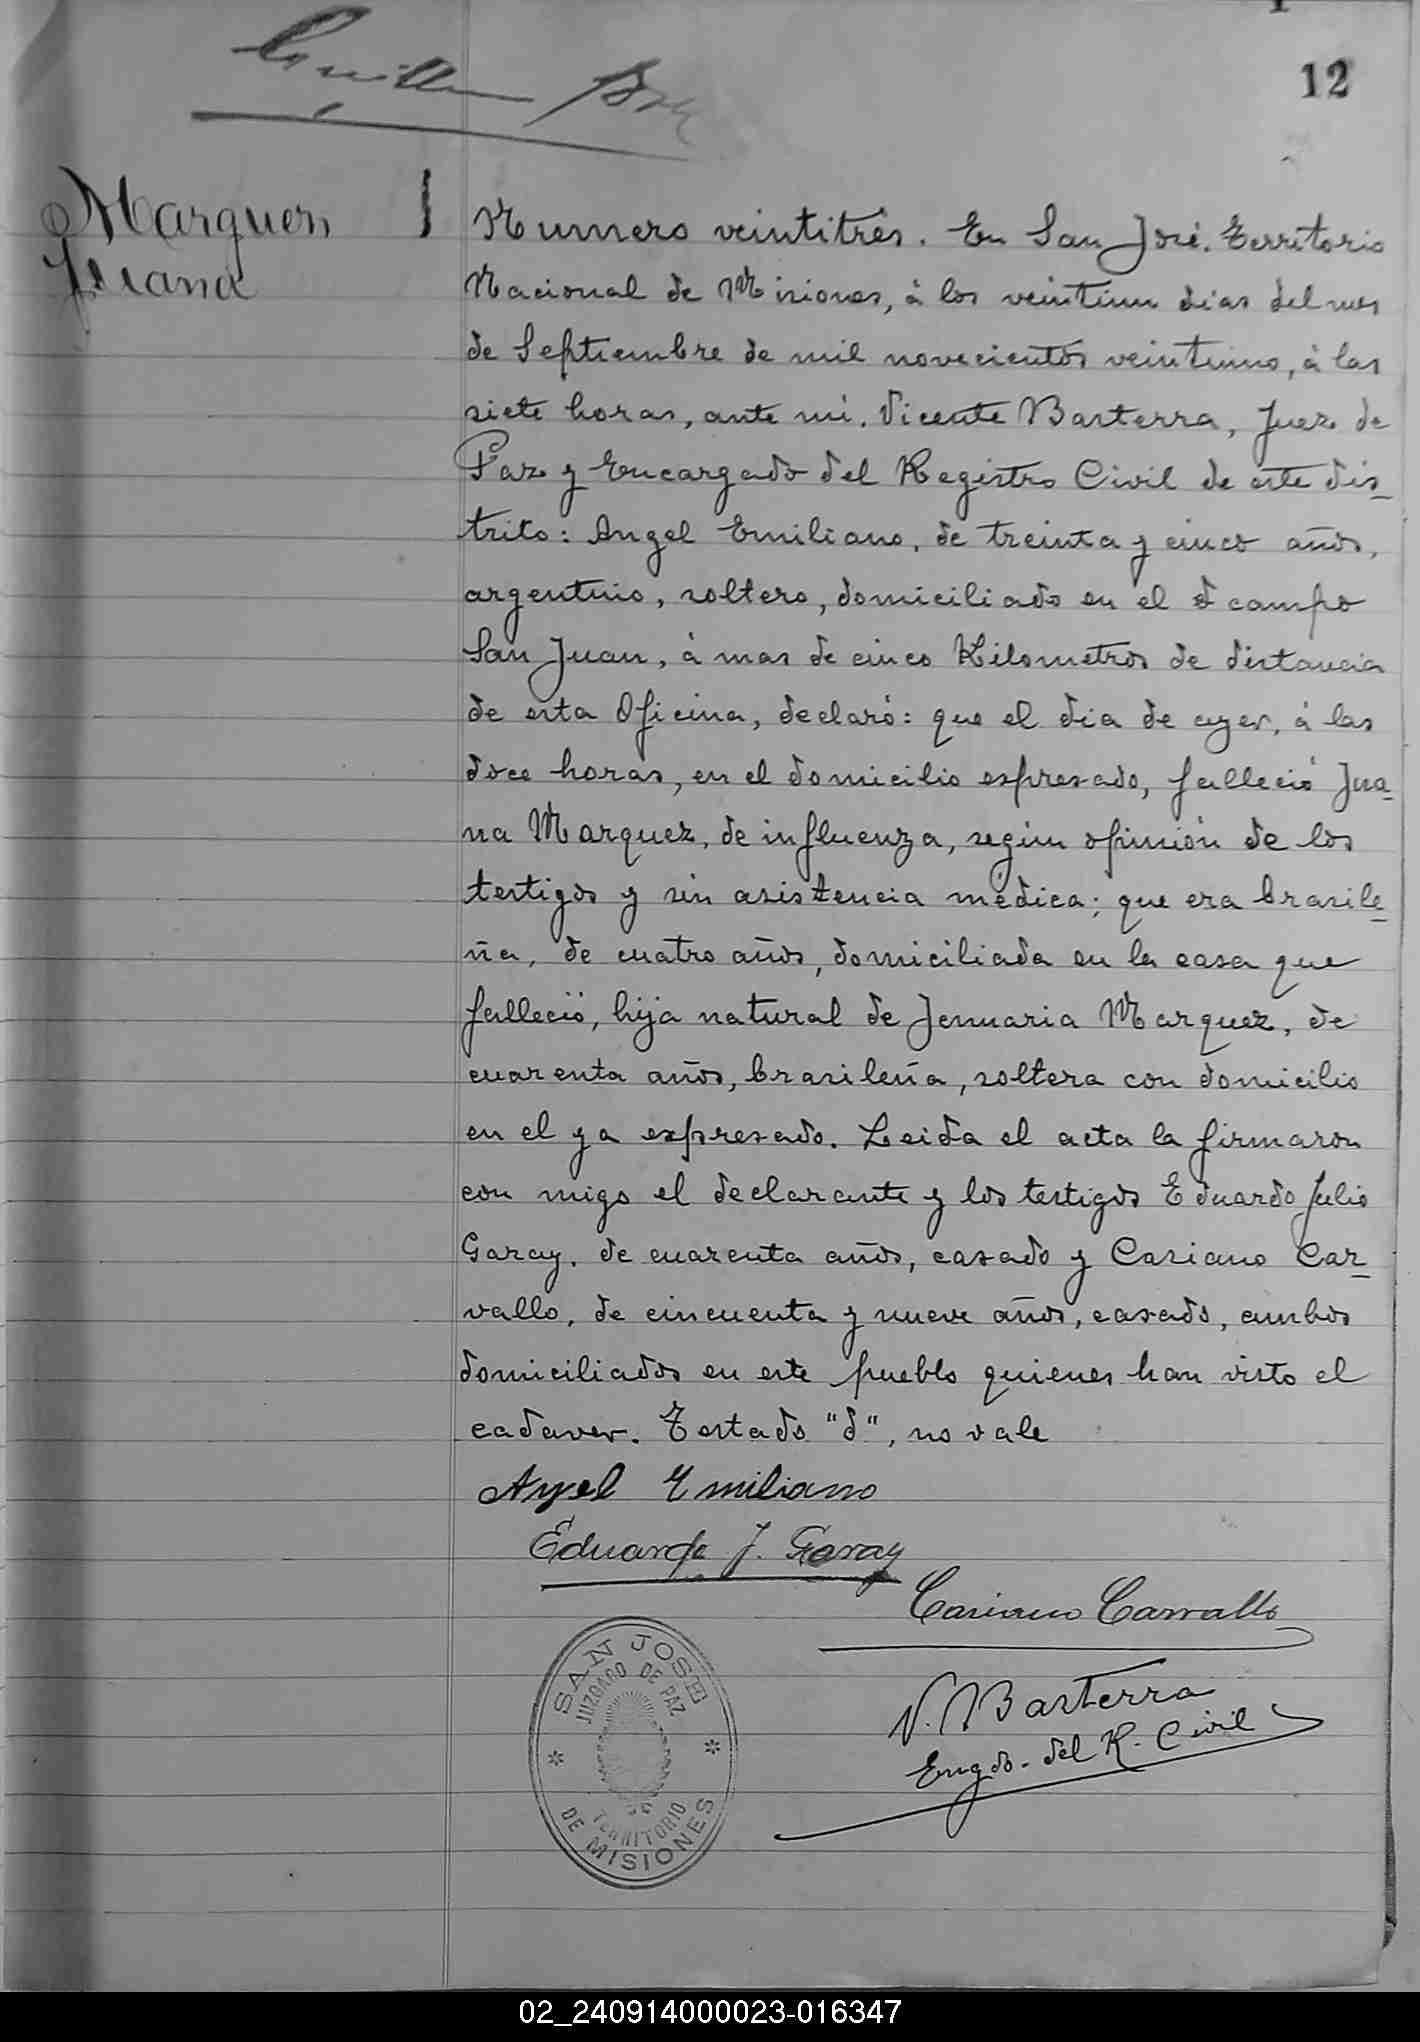 12
Marquez
Juana
Numero veintitrés. En San José. Territorio
Nacional de Misiones, á los veintiun dias del mes
de Septiembre de mil novecientos veintiuno, á las
siete horas, ante mi. Vicente Basterra, Juez de
Paz y Encargado del Registro Civil de este dis_
trito: Angel Emiliano, de treinta y cinco años,
argentino, soltero, domiciliado en el d campo
San Juan, á mas de cinco Kilometros de distancia
de esta Oficina, declaró: que el dia de ayer, á las
doce horas, en el domicilio espresado, falleció Jua_
na Marquez, de influenza, según opinión de los
testigos y sin asistencia médica; que era brasile_
ña, de cuatro años, domiciliada en la casa que
falleció, hija natural de Jenuaria Marquez, de
cuarenta años, brasileña, soltera con domicilio
en el ya espresado. Leida el acta la firmaron
con migo el declarante y los testigos Eduardo Julio
Garay, de cuarenta años, casado y Casiano Car_
vallo, de cincuenta y nueve años, casado, ambos
domiciliados en este pueblo quienes han visto el
cadaver. Testado "d", no vale
Angel Emiliano
Eduardo J. Garay
Casiano Carvallo
V. Basterra
Engdo. del R. Civil
SAN JOSE
JUZGADO DE PAZ
TERRITORIO
DE MISIONES
02_240914000023-016347